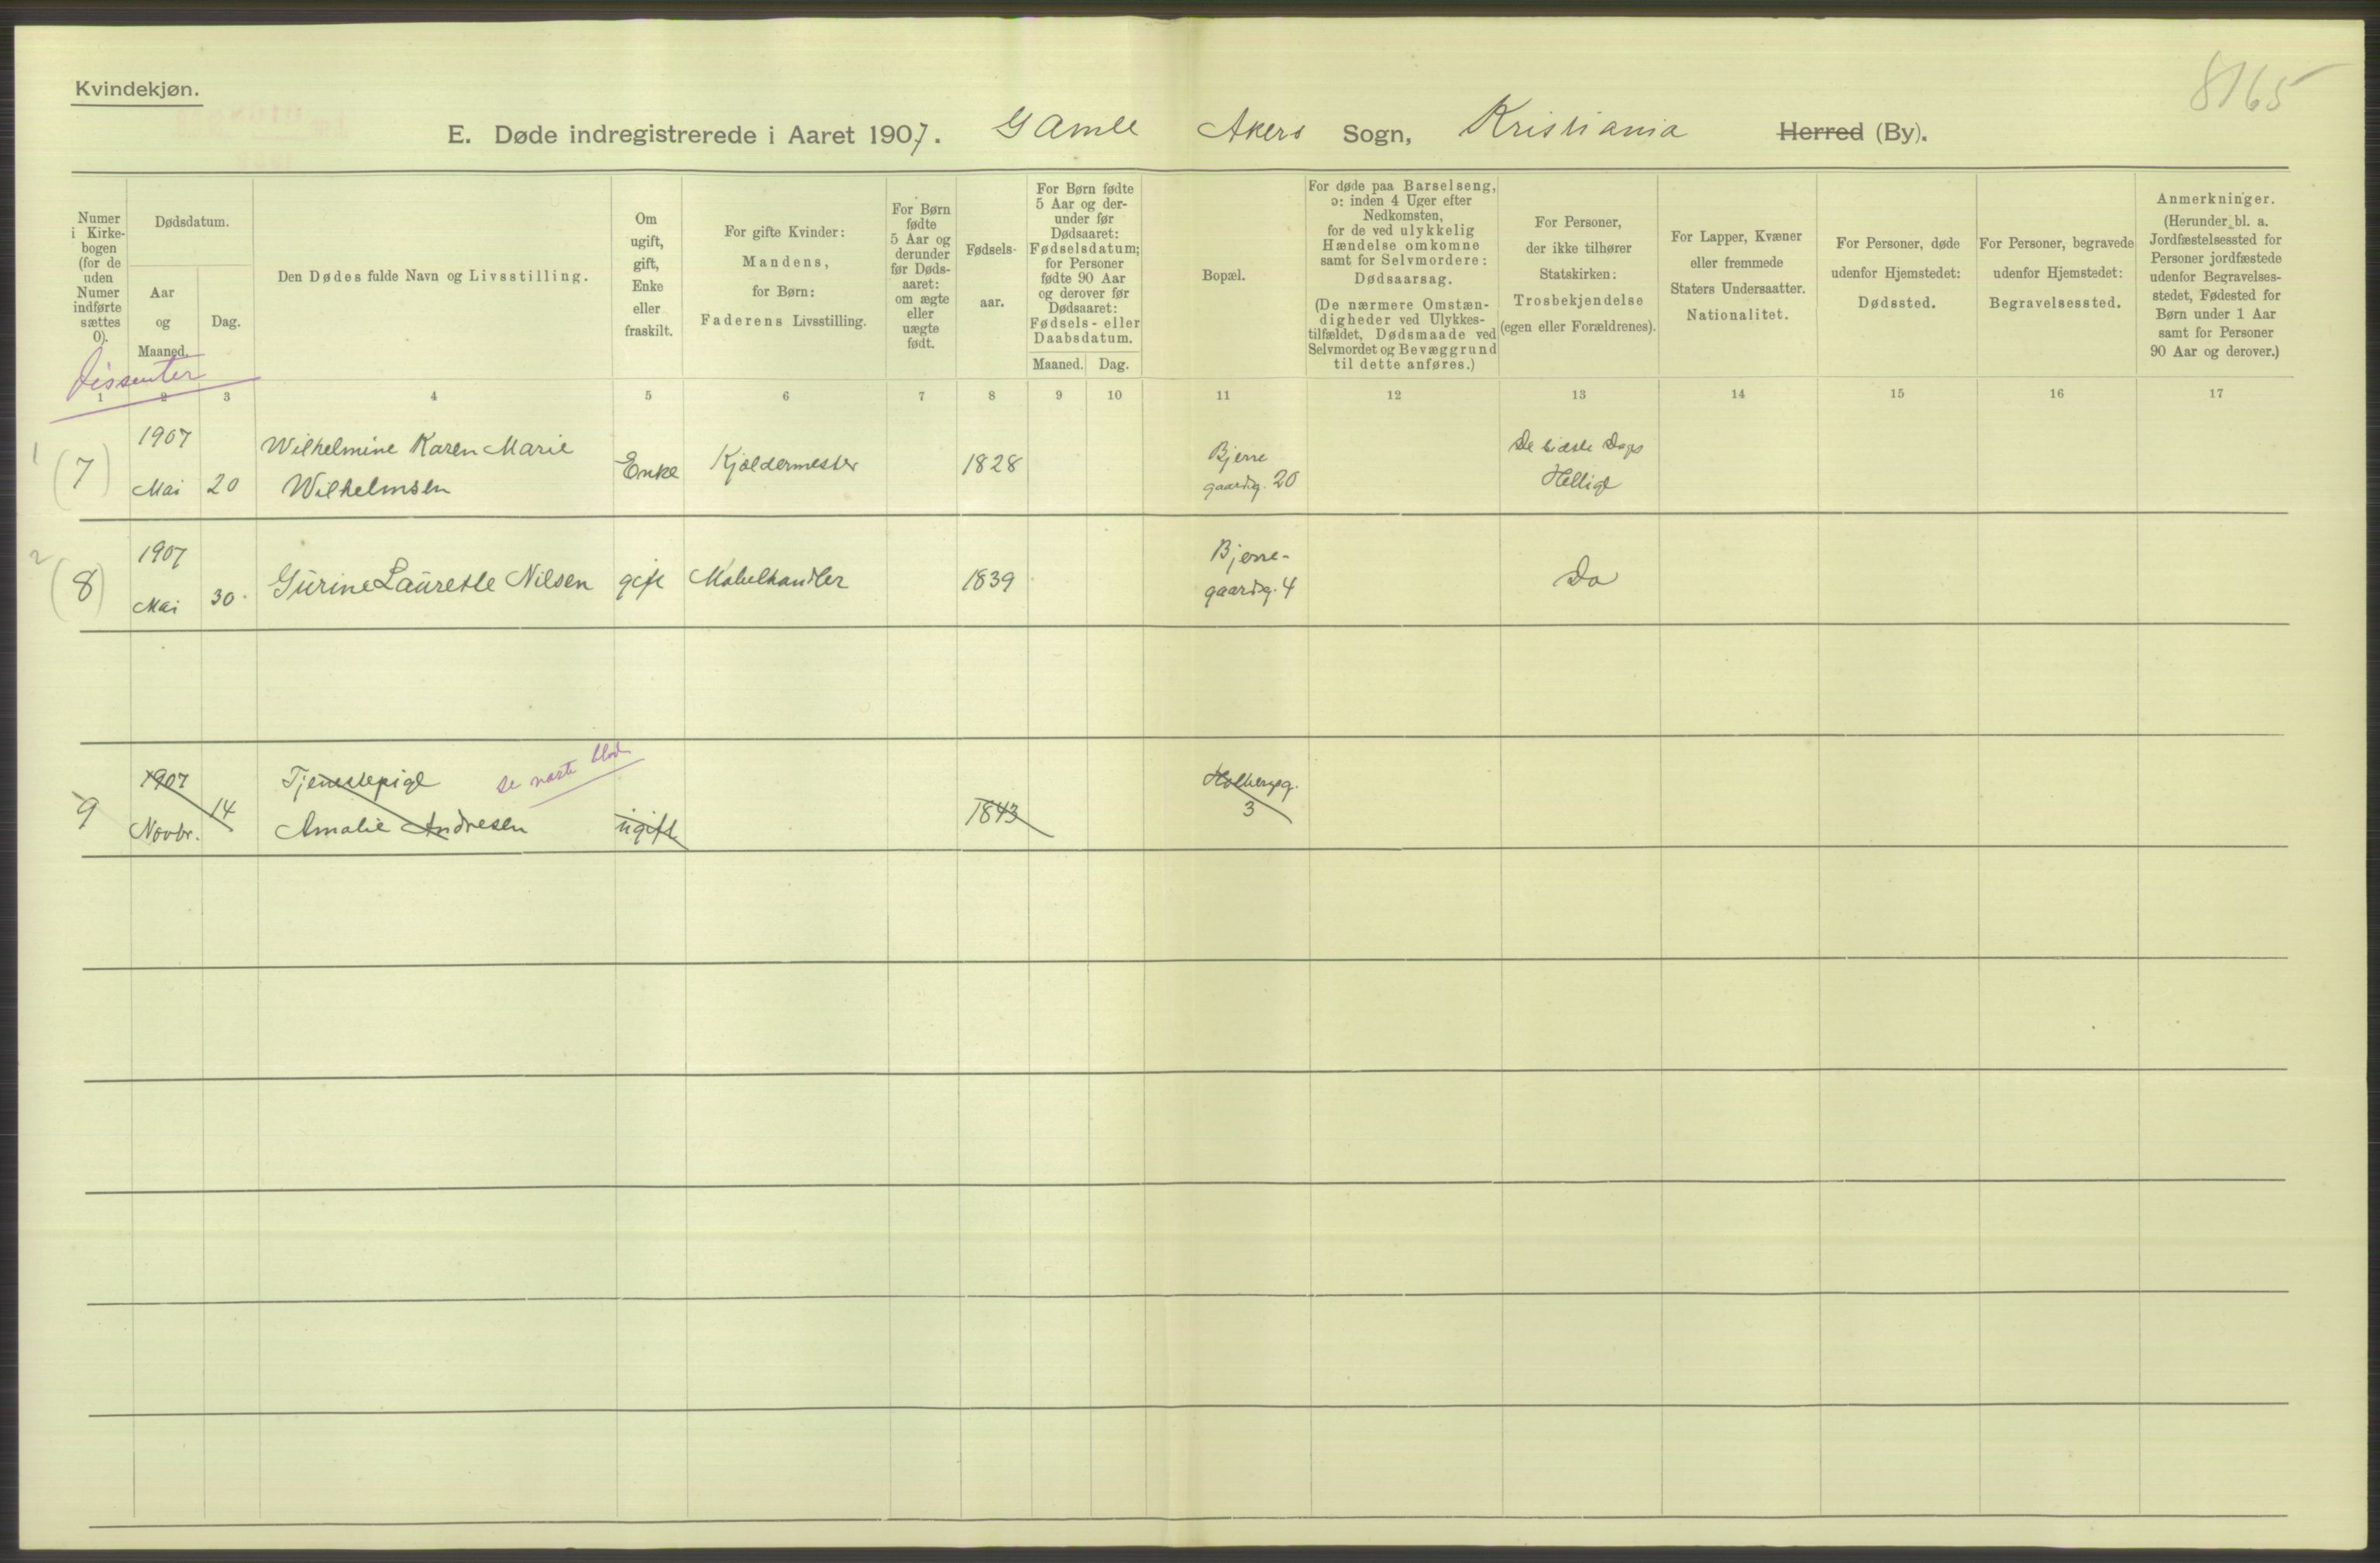 Kvindekjøn.
8165
E. Døde indregistrerede i Aaret 1907. Gamle Akers Sogn, Kristiania Herred (By).
Numer
i Kirke-
bogen
(for de
uden
Numer
indførte
sættes
0).
Dødsdatum.
Aar
og
Maaned.
Dag.
Den Dødes fulde Navn og Livsstilling.
Om
ugift,
gift,
Enke
eller
fraskilt.
For gifte Kvinder:
Mandens,
for Børn:
Faderens Livsstilling.
For Børn
fødte
5 Aar og
derunder
før Døds-
aaret:
om ægte
eller
uægte
født.
Fødsels-
aar.
For Børn fødte
5 Aar og der-
under før
Dødsaaret:
Fødselsdatum;
for Personer
fødte 90 Aar
og derover før
Dødsaaret:
Fødsels- eller
Daabsdatum.
Maaned.
Dag.
Bopæl.
For døde paa Barselseng,
ɔ: inden 4 Uger efter
Nedkomsten,
for de ved ulykkelig
Hændelse omkomne
samt for Selvmordere:
Dødsaarsag.
(De nærmere Omstæn-
digheder ved Ulykkes-
tilfældet, Dødsmaade ved
Selvmordet og Bevæggrund
til dette anføres.)
For Personer,
der ikke tilhører
Statskirken:
Trosbekjendelse
(egen eller Forældrenes).
For Lapper, Kvæner
eller fremmede
Staters Undersaatter.
Nationalitet.
For Personer, døde
udenfor Hjemstedet:
Dødssted.
For Personer, begravede
udenfor Hjemstedet:
Begravelsessted.
Anmerkninger.
(Herunder bl. a.
Jordfæstelsessted for
Personer jordfæstede
udenfor Begravelses-
stedet, Fødested for
Børn under 1 Aar
samt for Personer
90 Aar og derover.)
Dissenter
1 2 3 4 5 6 7 8 9 10 11 12 13 14 15 16 17
1
(7)
1907
Mai 20
Wilhelmine Karen Marie
Wilhelmsen
Enke
Kjældermester
1828
Bjerre
gaardsg. 20
De sidste Dags
Hellige
2
(8)
1907
Mai 30.
Gurine Laurette Nilsen
gift
Møbelhandler
1839
Bjerre-
gaardsg. 4
Do
9
1907
Novbr. 14
Tjenestepige
Amalie Andresen
se næste
ugift
1843
Holbergsg.
3